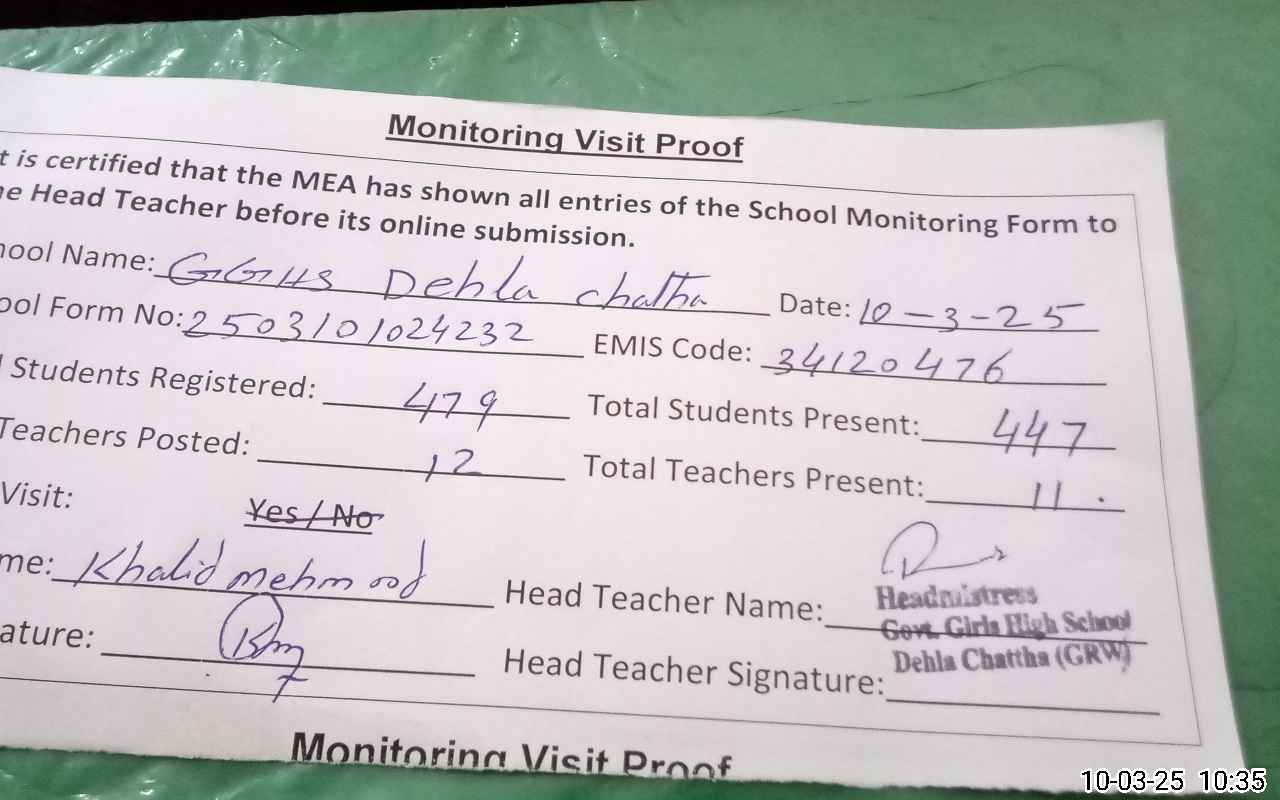 Monitoring Visit Proof
t is certified that the MEA has shown all entries of the School Monitoring Form to
e Head Teacher before its online submission.
ool Name: GGHS Dehla chatha Date: 10-3-25
ool Form No: 2503101024232 EMIS Code: 34120476
Students Registered: 479 Total Students Present: 447
Teachers Posted: 12 Total Teachers Present: 11.
Visit: Yes / No
me: Khalid mehmood Head Teacher Name:
Headmistress
Govt. Girls High School
Dehla Chattha (GRW)
ature: Head Teacher Signature:
Monitoring Visit Proof
10-03-25 10:35